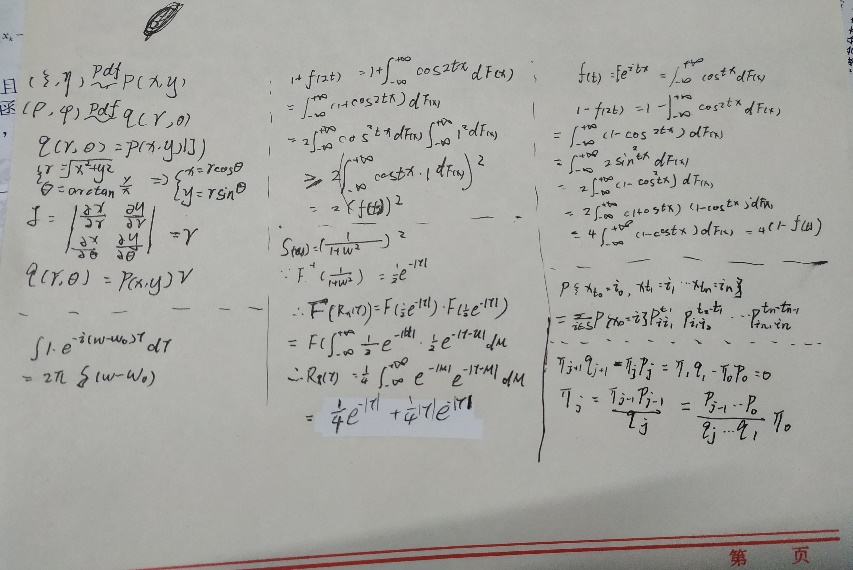 (ξ,η) pdf~ P(x,y)
(ρ,φ) pdf~ q(r,θ)
q(r,θ) = P(x,y)|J|
{r = √(x²+y²)
θ = arctan y/x => {x = rcosθ
y = rsinθ
J = |∂x/∂r ∂y/∂r
∂x/∂θ ∂y/∂θ| = r
q(r,θ) = P(x,y) r
∫1·e^{-i(w-w₀)τ} dτ
= 2π δ(w-w₀)
1+f(2t) = 1+∫_{-∞}^{+∞} cos2tx dF(x)
= ∫_{-∞}^{+∞} (1+cos2tx) dF(x)
= 2∫_{-∞}^{+∞} cos²tx dF(x) ∫_{-∞}^{+∞} 1² dF(x)
≥ 2(∫_{-∞}^{+∞} costx·1 dF(x))²
= 2(f(t))²
S(w) = (1/(1+w²))²
∵ F⁻¹(1/(1+w²)) = ½e^{-|τ|}
∴ F(Rₓ(τ)) = F(½e^{-|τ|})·F(½e^{-|τ|})
= F(∫_{-∞}^{+∞} ½e^{-|u|}·½e^{-|τ-u|} du
∴ Rₓ(τ) = ¼∫_{-∞}^{+∞} e^{-|u|} e^{-|τ-u|} du
= ¼e^{-|τ|} + ¼|τ|e^{-|τ|}
f(t) = Ee^{itx} = ∫_{-∞}^{+∞} costx dF(x)
1-f(2t) = 1-∫_{-∞}^{+∞} cos2tx dF(x)
= ∫_{-∞}^{+∞} (1-cos2tx) dF(x)
= ∫_{-∞}^{+∞} 2sin²tx dF(x)
= 2∫_{-∞}^{+∞} (1-cos²tx) dF(x)
= 2∫_{-∞}^{+∞} (1+costx)(1-costx) dF(x)
= 4∫_{-∞}^{+∞} (1-costx) dF(x) = 4(1-f(t))
P{x_{t₀}=i₀, x_{t₁}=i₁ ··· x_{tn}=in}
= Σ_{i∈S} P{x₀=i} P_{ii₁}^{t₁} P_{i₁i₂}^{t₂-t₁} ··· P_{in-1,in}^{tn-tn-1}
π_{j+1}q_{j+1} - π_jP_j = π₁q₁ - π₀P₀ = 0
π_j = π_{j-1}P_{j-1}/q_j = P_{j-1}···P₀/q_j···q₁ π₀
第 页